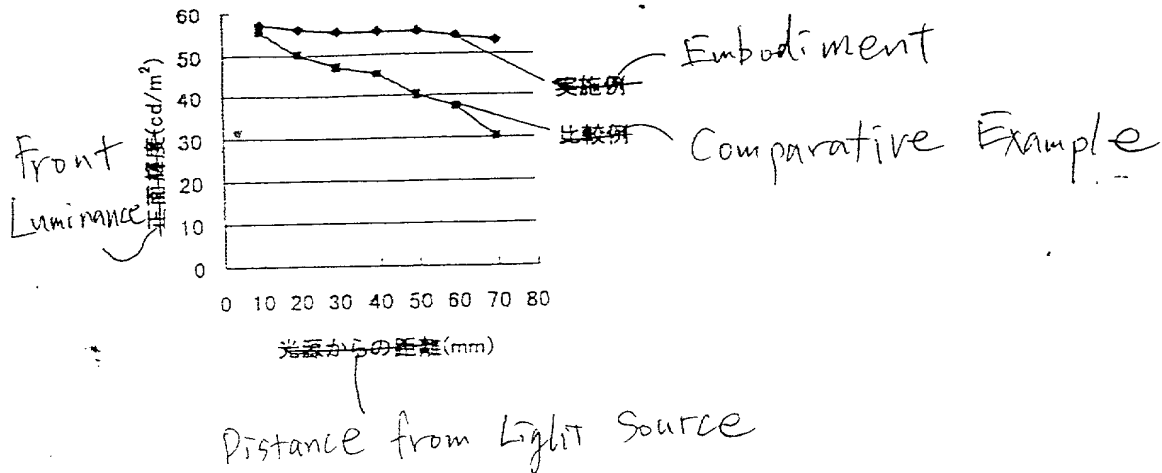 60
50
40
30
20
10
0
正面輝度(cd/m²)
Front
Luminance
実施例
Embodiment
比較例
Comparative Example
0 10 20 30 40 50 60 70 80
光源からの距離(mm)
Distance from Light Source